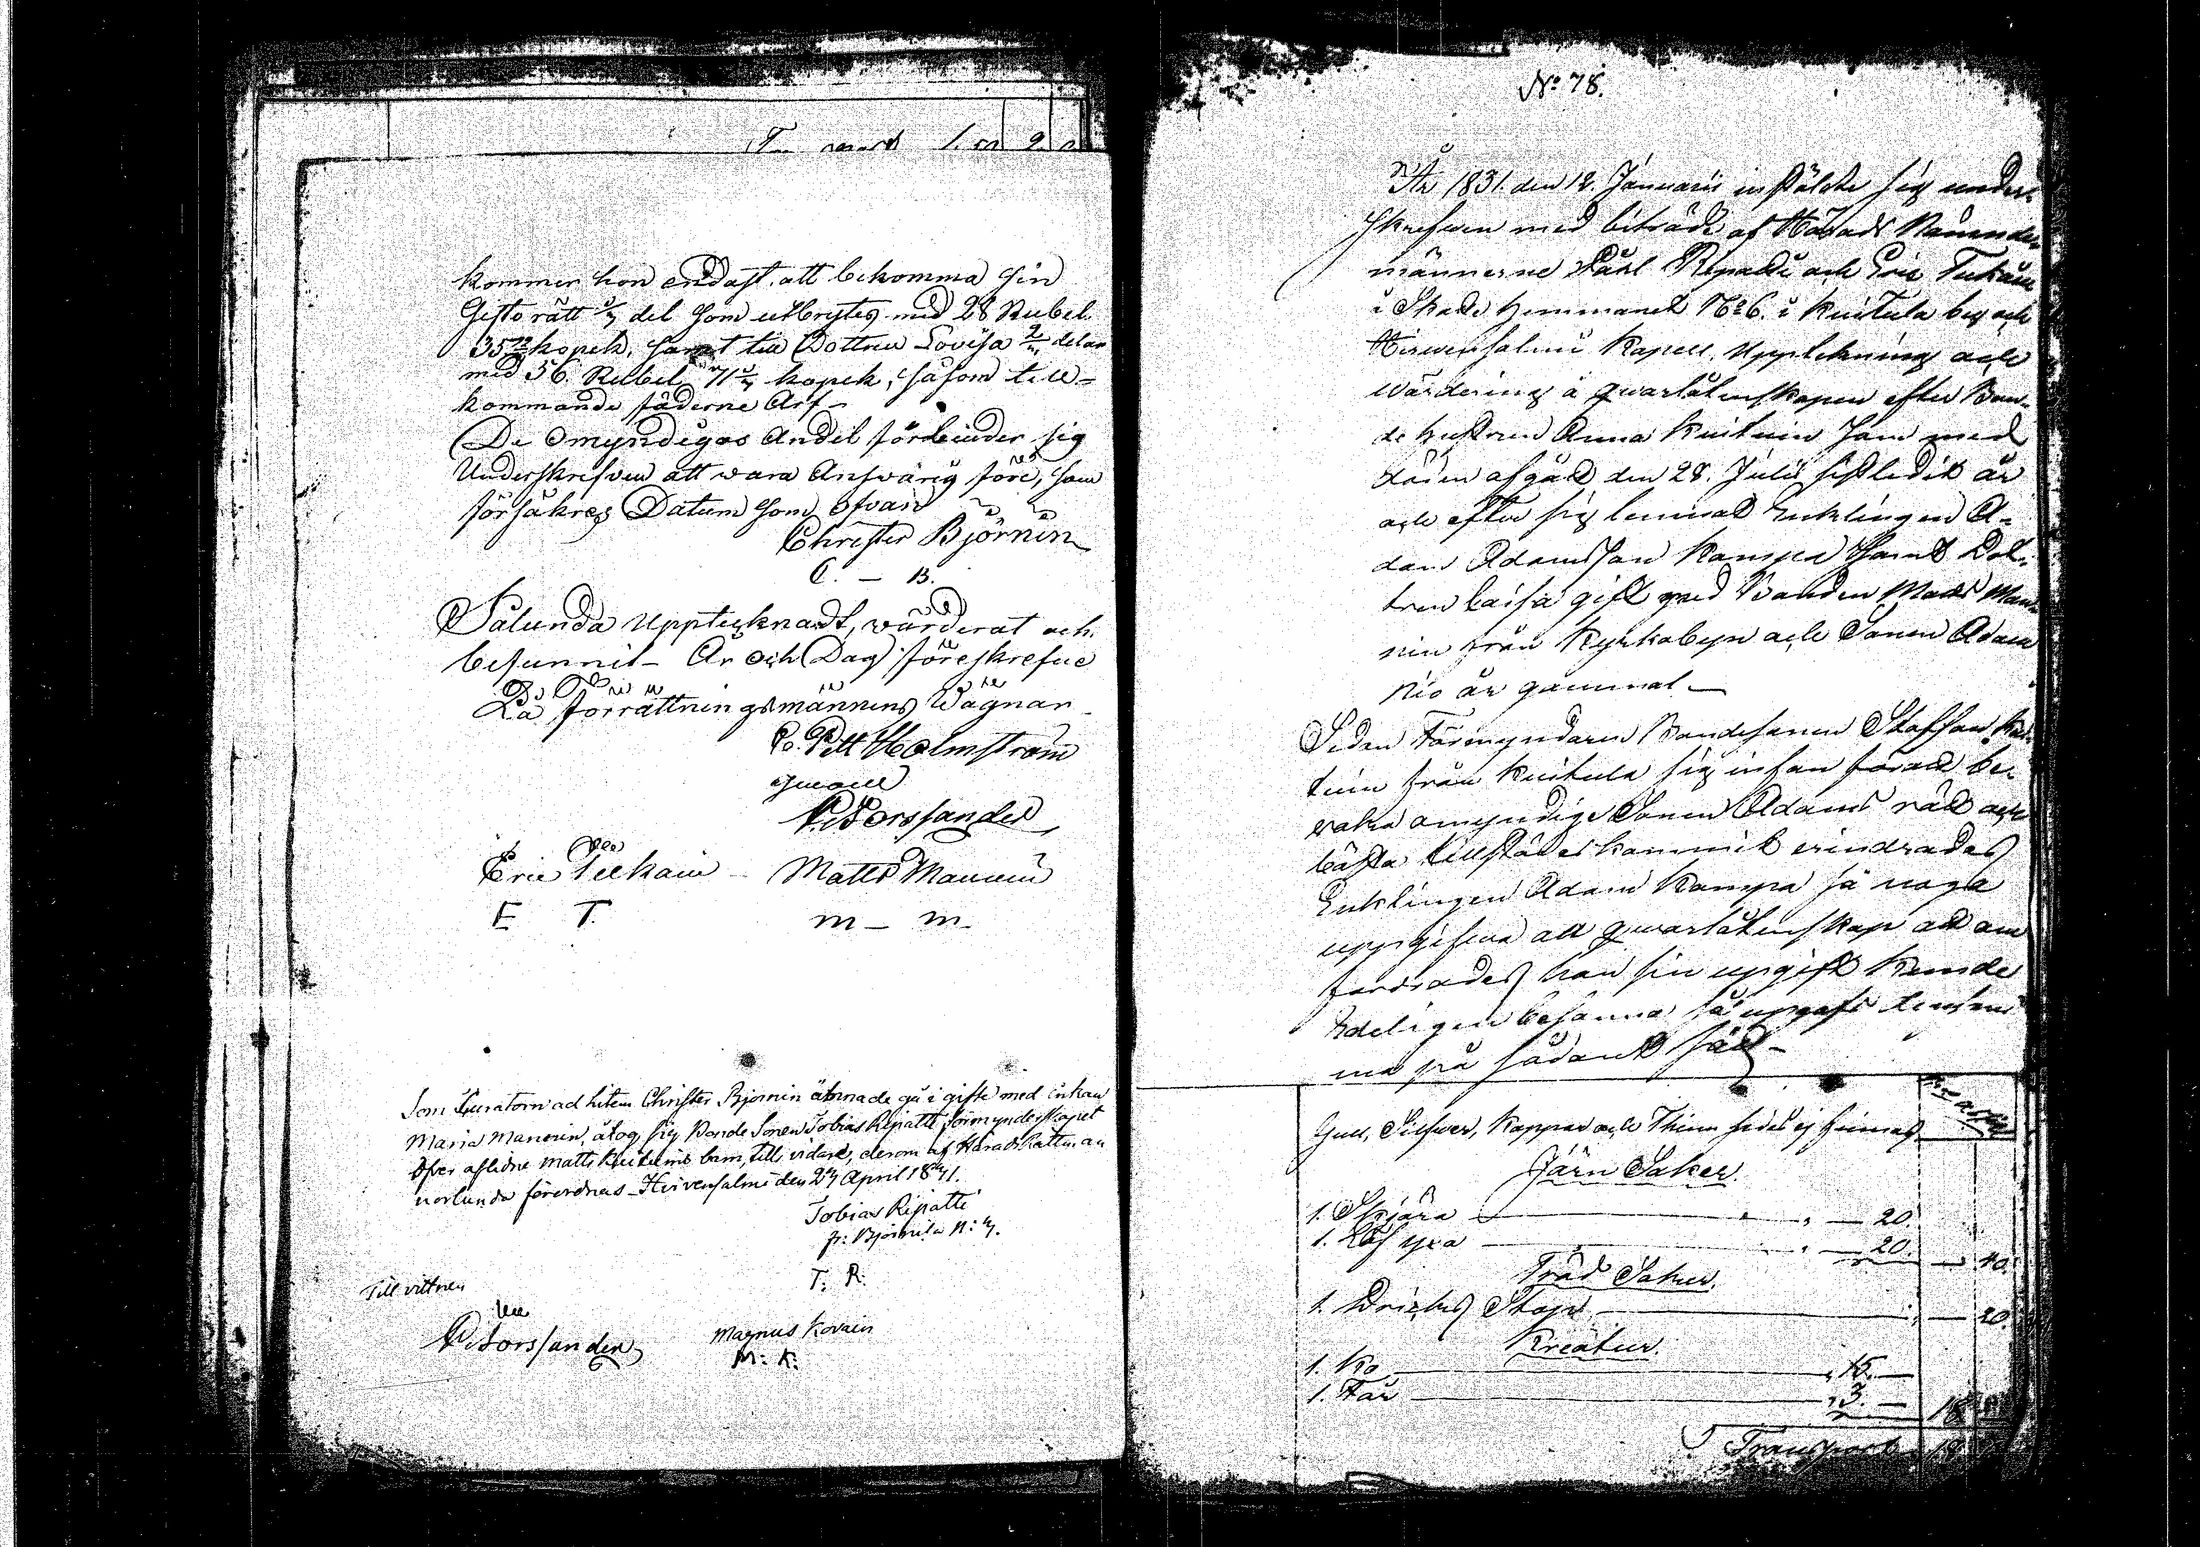 kommer hon endast att bekomma sin
Gifto rätt 1/7 del som utbrytes med 28 Rubel.
35 kopek, samt till Dottren Lovisa 2/7 delar
med 56. Rubel 71 3/7 kopek, såsom till-
kommande fäderne Arf-
De Omyndigas Andel förbinder sig
Underskrefven att wara Answarig före, som
försäkras Datum som ofvan
Christer Björnin
C. — B.
Sålunda Upptecknadt, wärderat och
befunnit - År och Dag föreskrefne
På Förrättningsmännens Wägnar
P. Holmström
P. Forssander
Eric Teekain Matts Manninen
E T. m — m.
Som Curatorn ad litem Christer Bjornin ärnade gå i gifte med Enkan
Maria Manonin, åtog sig Bonde Sonen Tobias Ripatti Förmynderskapet
Öfver aflidne Matts barn, till vidare, derom af Härads Rätten an
norlunda förordnas - Hirvensalmi den 27 April 1841.
Tobias Ripatti
fr: Bjornila N: 7.
T: R:
Till vittnen
P. Forssander
Magnus Kovain
M: K:
No 78.
År 1831. den 12. Januarii instälde sig under-
skrefwen med biträde af Härads Nämnde-
männerne Påhl Ripatti och Eric Tukiain
i Skatte hemmanet No 6. i Kuitula by och
Hirwensalmi Kapell, Uppteckning och
Wärdering å qwarlåtenskapen efter Bon-
de hustrun Anna Kuituin som med
döden afgåt den 28. Julii sistledit år
och efter sig lemnat Enklingen A-
dam Adamsson Kampa samt Dot-
tren Caisa gift med Bonden Mats Man-
nin från Kyrkobyn och Sonen Adam
nio år gammal —
Sedan Förmyndaren Bondesonen Staffan Kui-
tuin från Kuitula sig infan förat be-
vaka omyndige Sonen Adams rätt och
bästa tillstädeskommit erindrades
Enklingen Adam Kampa så noga
uppgifwa all qwarlåtenskap att om
fordrades han sin upgift kunde
Edeligen besanna så upgafs densam
ma på sådant sätt —
Gull, Silfwer, Koppar och Thenn sades ej finnas
Järn Saker
1. Skjära — 20.
1. — 20. — 40.
Träd Saker.
1. Dricks Stop — 20.
Kreatur.
1. Ko — 15. —
1. Får — 3. — 18
Transport 18